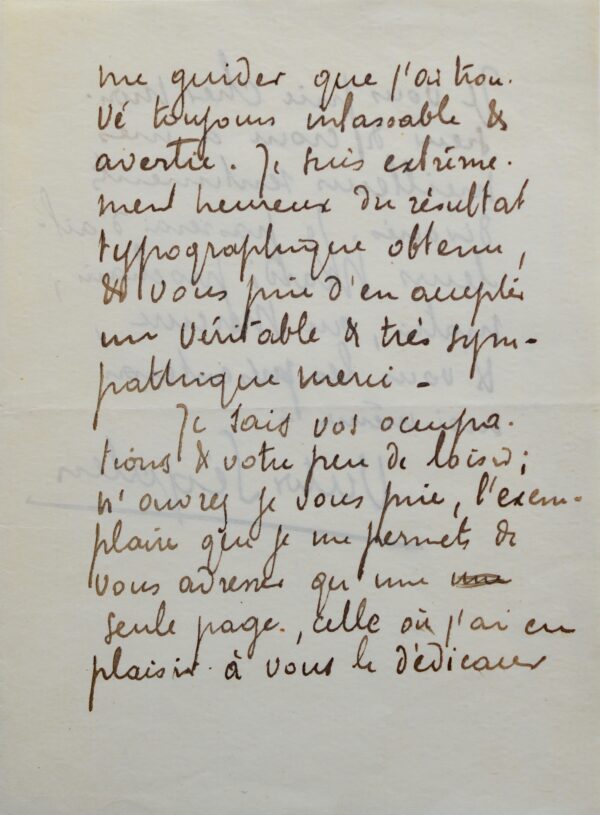 me guider que j'ai trou-
vé toujours inlassable &
avertie. Je suis extrême-
ment heureux du résultat
typographique obtenu,
& vous prie d'en accepter
un véritable & très sym-
pathique merci -
Je sais vos occupa-
tions & votre peu de loisir;
n'ouvrez je vous prie, l'exem-
plaire que je me permets de
vous adresser qu'une
seule page, celle où j'ai eu
plaisir à vous le dédicacer